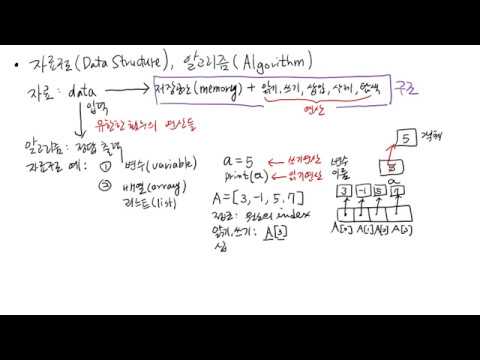 • 자료구조(Data Structure), 알고리즘(Algorithm)
자료: data → 저장공간(memory) + 읽기, 쓰기, 삽입, 삭제, 탐색 구조
입력 연산
유한한 횟수의 연산들
알고리즘: 정답 출력
자료구조 예: ① 변수(variable)
② 배열(array)
리스트(list)
a = 5 ← 쓰기연산
print(a) ← 읽기연산
A = [3, -1, 5, 7]
접근: 원소의 index
읽기, 쓰기: A[3]
삽
5 객체
변수
이름
a
3 -1 5 7
A[0] A[1] A[2] A[3]